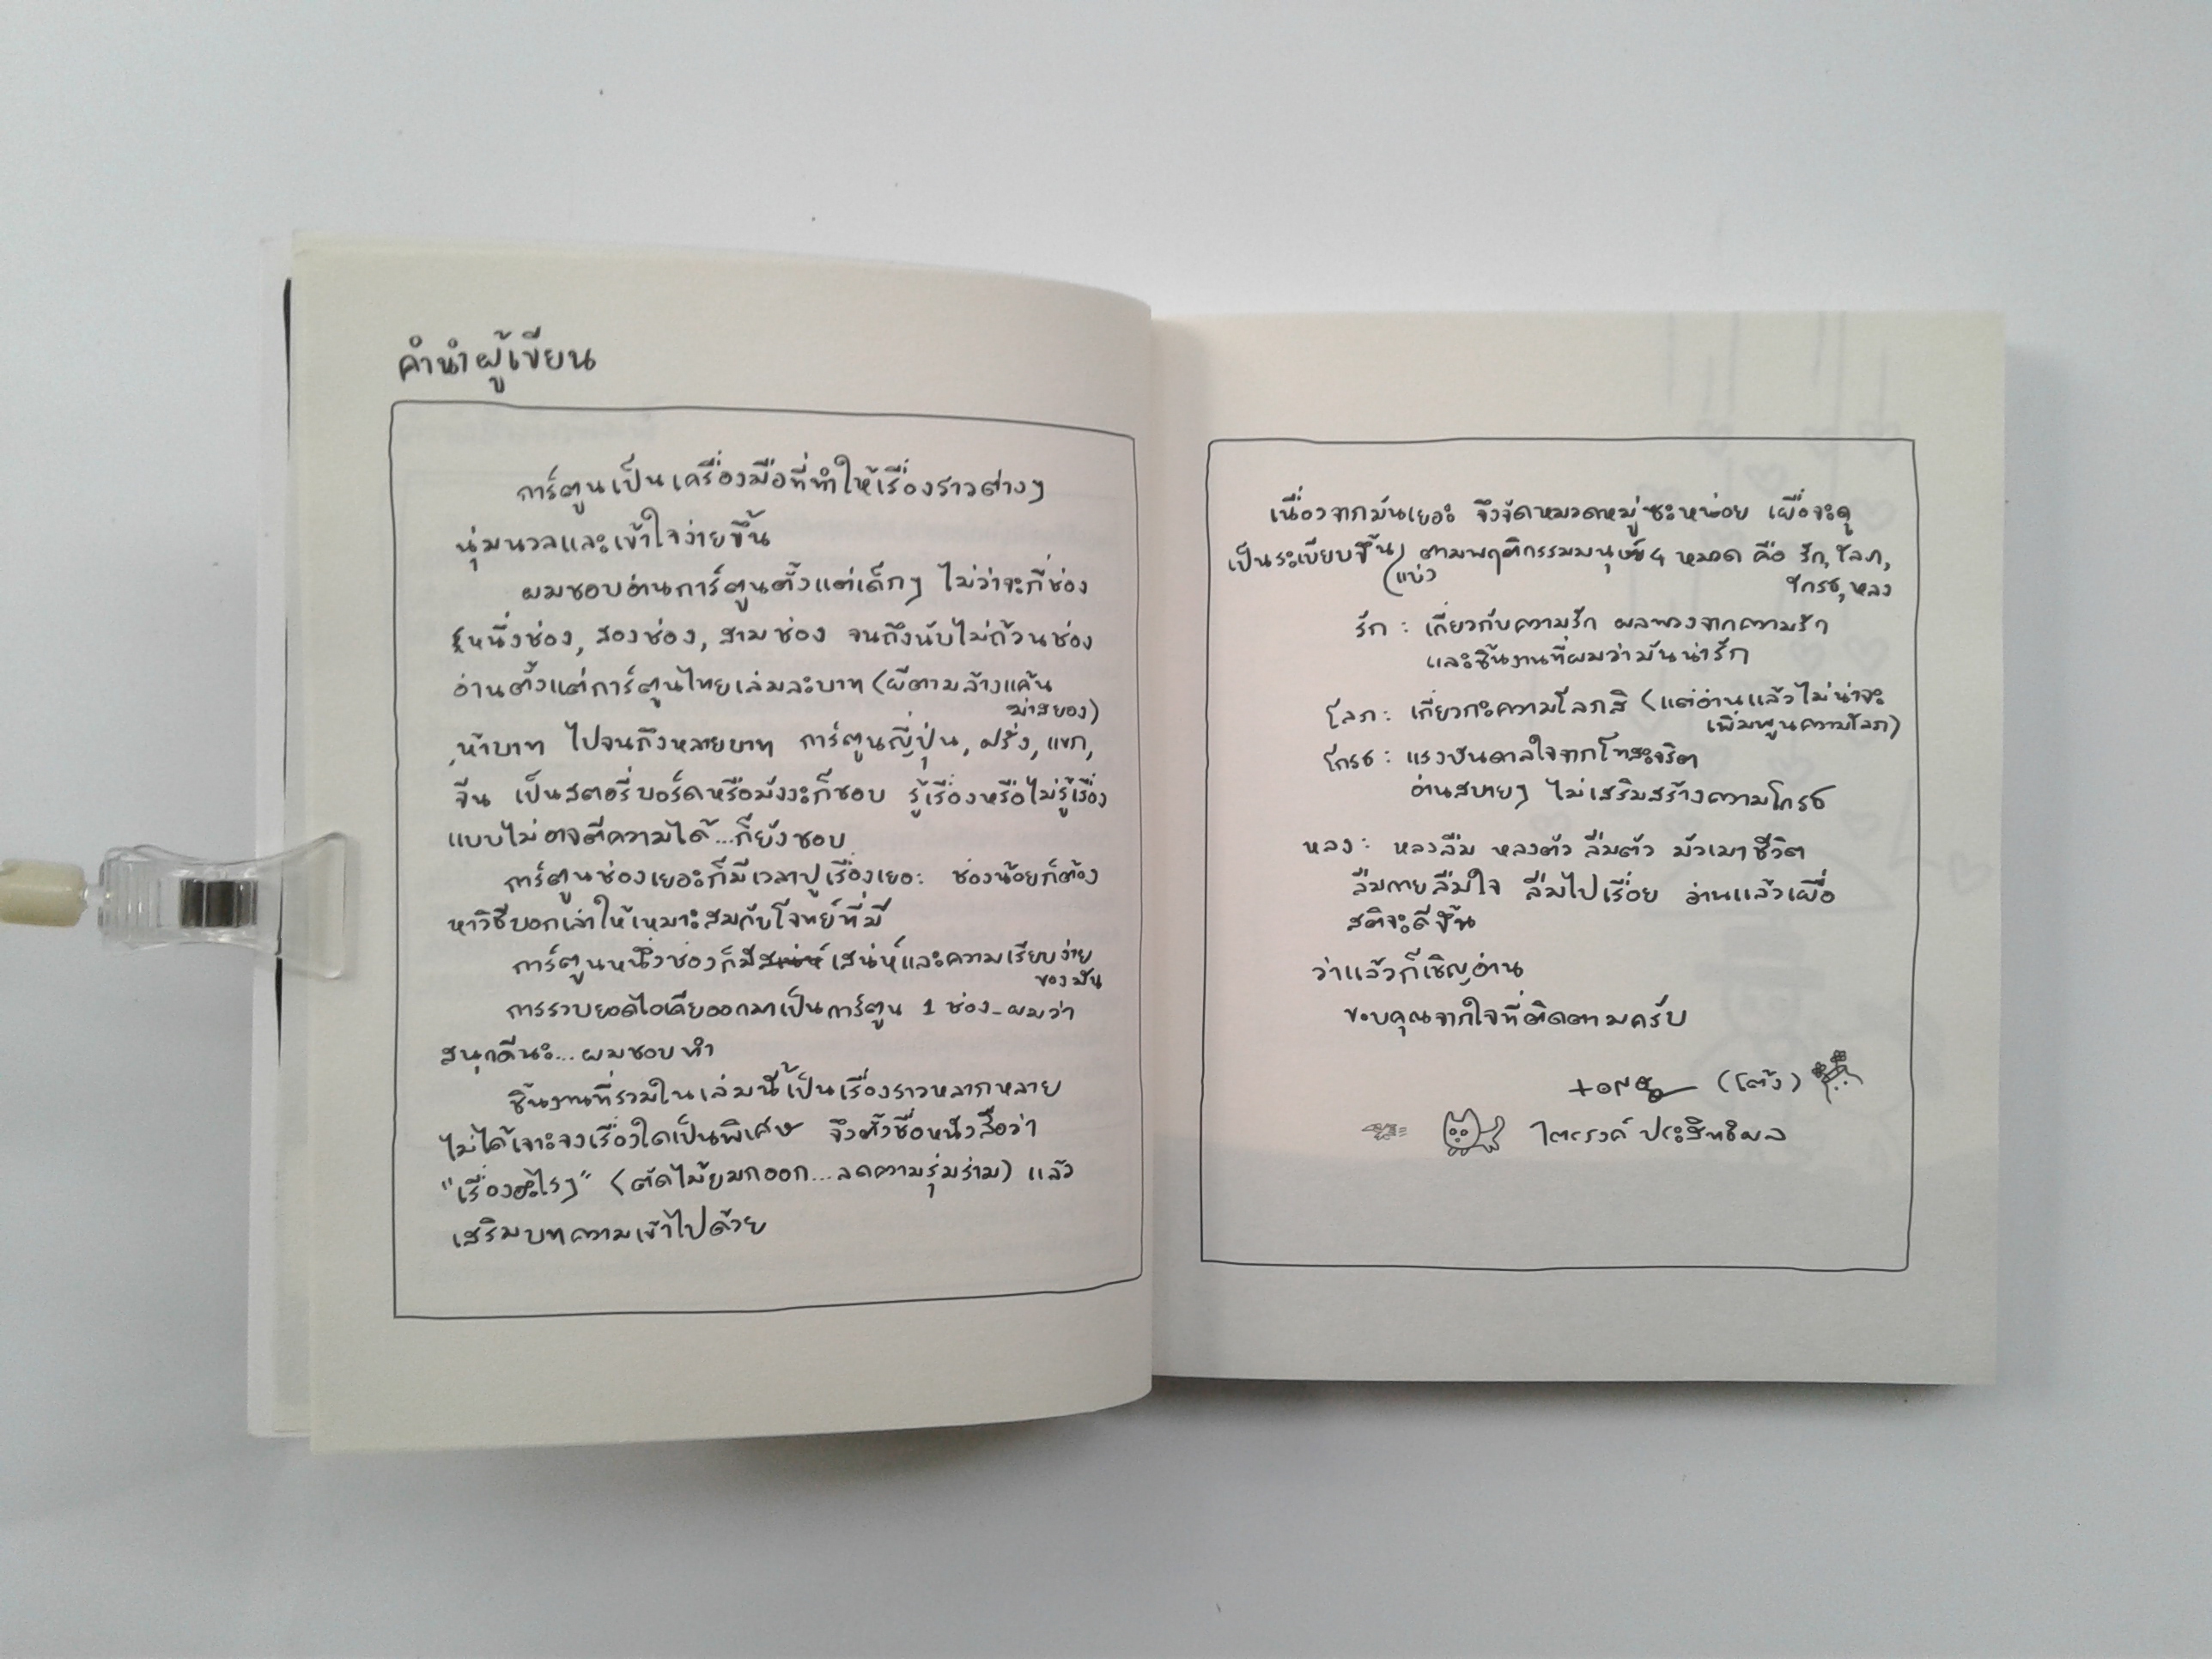 คำนำผู้เขียน
การ์ตูนเป็นเครื่องมือที่ทำให้เรื่องราวต่างๆ
นุ่มนวลและเข้าใจง่ายขึ้น
ผมชอบอ่านการ์ตูนตั้งแต่เด็กๆ ไม่ว่าจะกี่ช่อง
หนึ่งช่อง, สองช่อง, สามช่อง จนถึงนับไม่ถ้วนช่อง
อ่านตั้งแต่การ์ตูนไทยเล่มละบาท (ผีตามล้างแค้น
น่าสยอง)
ห้าบาท ไปจนถึงหลายบาท การ์ตูนญี่ปุ่น, ฝรั่ง, แขก,
จีน เป็นสตอรี่บอร์ดหรือมังงะก็ชอบ รู้เรื่องหรือไม่รู้เรื่อง
แบบไม่อาจตีความได้...ก็ยังชอบ
การ์ตูนช่องเยอะก็มีเวลาปูเรื่องเยอะ ช่องน้อยก็ต้อง
หาวิธีบอกเล่าให้เหมาะสมกับโจทย์ที่มี
การ์ตูนหนึ่งช่องก็มีเสน่ห์และความเรียบง่าย
ของมัน
การรวบยอดไอเดียออกมาเป็นการ์ตูน 1 ช่อง ผมว่า
สนุกดีนะ...ผมชอบทำ
ชิ้นงานที่รวมในเล่มนี้เป็นเรื่องราวหลากหลาย
ไม่ได้เจาะจงเรื่องใดเป็นพิเศษ จึงตั้งชื่อหนังสือว่า
"เรื่องอะไรๆ" (ตัดไม้ยมกออก...ลดความรุ่มร่าม) แล้ว
เสริมบทความเข้าไปด้วย
เนื่องจากมันเยอะ จึงจัดหมวดหมู่ซะหน่อย เผื่อจะดู
เป็นระเบียบขึ้น ตามพฤติกรรมมนุษย์ 4 หมวด คือ รัก, โลภ,
(แบ่ง
โกรธ, หลง
รัก : เกี่ยวกับความรัก ผลพวงจากความรัก
และชิ้นงานที่ผมว่ามันน่ารัก
โลภ : เกี่ยวกะความโลภสิ (แต่อ่านแล้วไม่น่าจะ
เพิ่มพูนความโลภ)
โกรธ : แรงบันดาลใจจากโทสะจริต
อ่านสบายๆ ไม่เสริมสร้างความโกรธ
หลง : หลงลืม หลงตัว ลืมตัว มัวเมาชีวิต
ลืมกายลืมใจ ลืมไปเรื่อย อ่านแล้วเผื่อ
สติจะดีขึ้น
ว่าแล้วก็เชิญอ่าน
ขอบคุณจากใจที่ติดตามครับ
(โต้ง)
ไตรรงค์ ประสิทธิผล